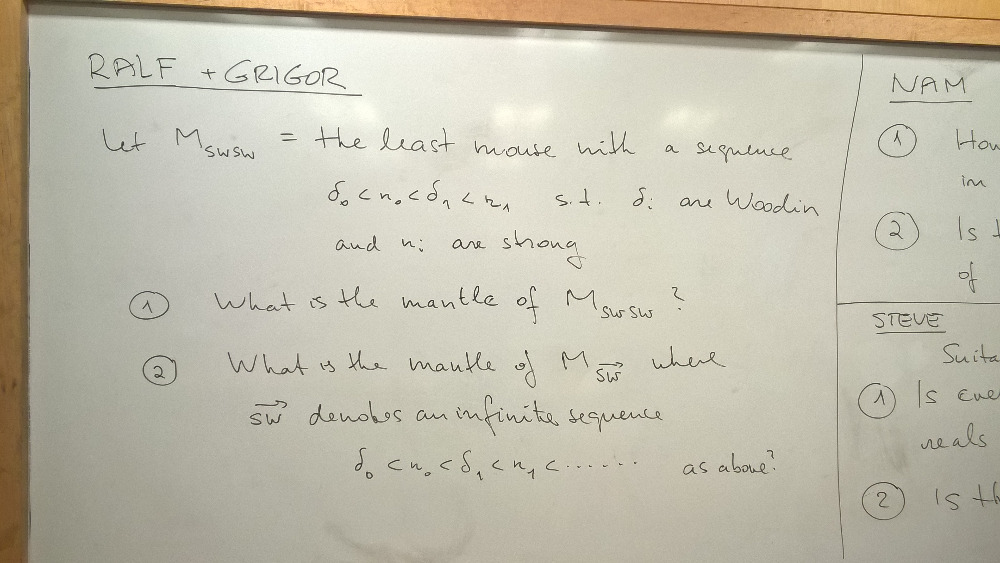 RALF + GRIGOR
Let M_swsw = the least mouse with a sequence
δ₀ < κ₀ < δ₁ < κ₁ s.t. δᵢ are Woodin
and κᵢ are strong
① What is the mantle of M_swsw ?
② What is the mantle of M_s⃗w⃗ where
s⃗w⃗ denotes an infinite sequence
δ₀ < κ₀ < δ₁ < κ₁ < ...... as above?
NAM
① How
in
② Is
of
STEVE
Suita
① Is eve
reals
② Is th